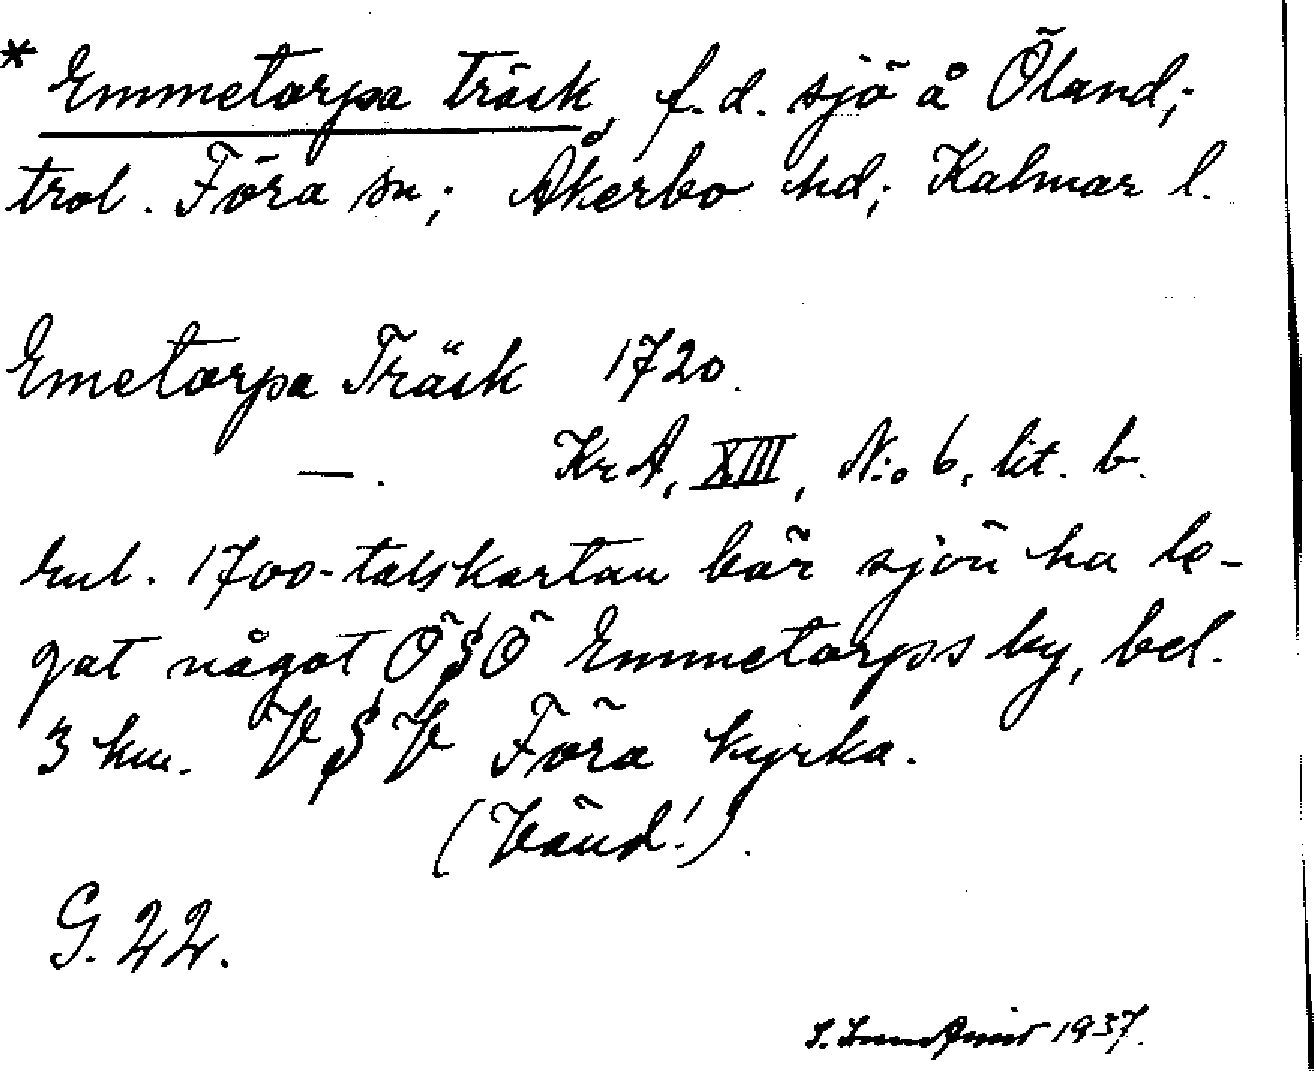 * Emmetorpa träsk, f.d. sjö å Öland;
trol. Föra sn; Åkerbo hd; Kalmar l.
Emetorpa Träsk 1720.
—. KrA, XIII, N:o 6, lit. b.
Enl. 1700-talskartan bör sjön ha le-
gat något ÖSÖ Emmetorps by, bel.
3 km. VSV Föra kyrka.
(Vänd!).
G. 22.
S. 1937.